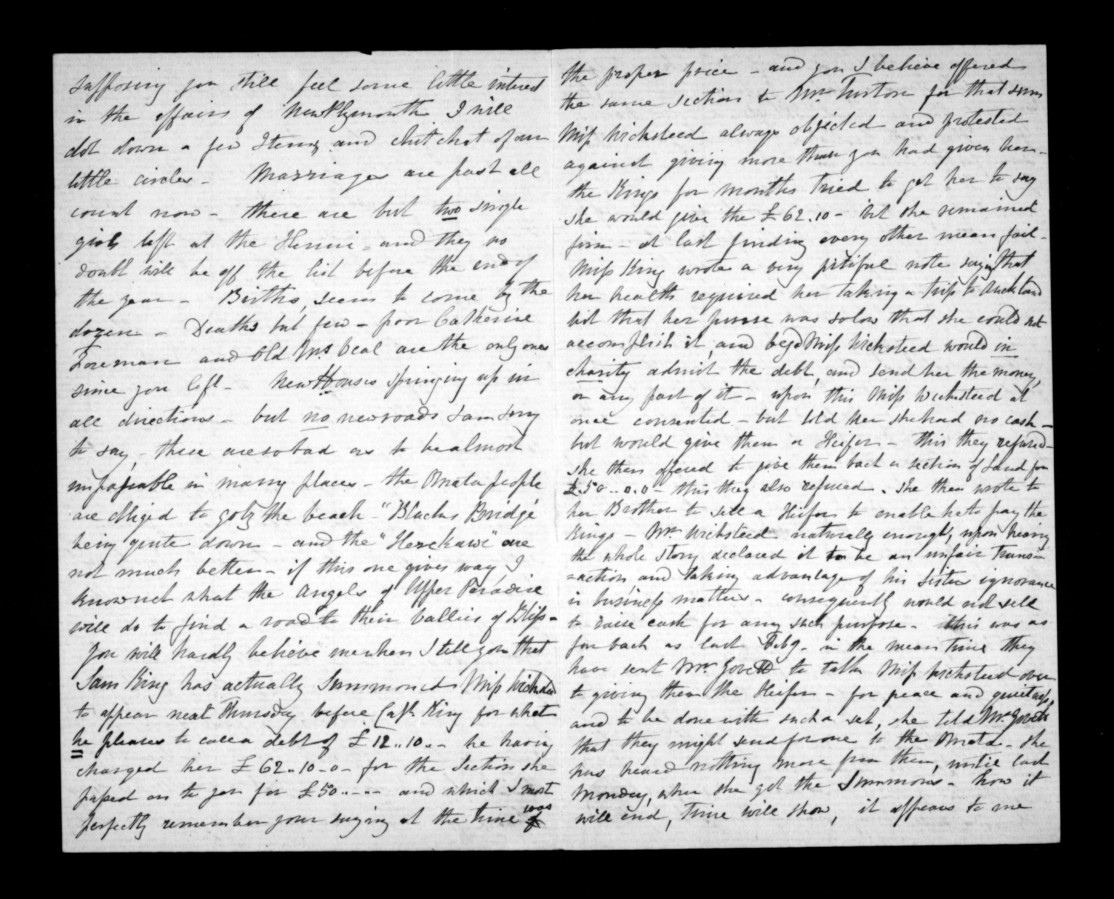 supposing you still feel some little interest
in the affairs of New Plymouth I will
dot down a few Items and chit chat of our
little circles - Marriages are past all
count now - there are but two single
girls left at the Henui - and they no
doubt will be off the list before the end of
the year - Births, seem to come by the
dozen - Deaths but few - poor Catherine
and Old Mrs Veal are the only ones
since you left - New Houses springing up in
all directions - but no new roads I am sorry
to say - these are so bad as to be almost
impassable in many places - the Omata people
are obliged to go by the beach - "Blacks Bridge"
being quite down - and the are
not much better - if this one gives way I
know not what the angels of Upper Paradise
will do to find a road to their vallies of Bliss -
You will hardly believe me when I tell you that
Sam King has actually Summoned Miss Wicksteed
to appear next Thursday before Capt King for what
he pleases to call a debt of £12..10..- he having
charged her £62..10-0- for the Section she
passed on to you for £50..-.- and which I most
perfectly remember your saying at the time was
the proper price - and you I believe offered
the same section to Mr Turton for that sum
Miss Wicksteed always objected and protested
against giving more than you had given her -
the Kings for months tried to get her to say
she would give the £62.10 - but she remained
firm - at last finding every other mean fail -
Miss King wrote a very pitiful note saying that
her health required her taking a trip to Auckland
but that her purse was so low that she could not
accomplish it, and begd Miss Wicksteed would in
charity admit the debt, and send her the money,
or any part of it - upon this Miss Wicksteed at
once consented - but told her she had no cash -
but would give them a Heifer - this they refused -
she then offered to give them back a section of Land for
£50..0.0 - this they also refused. She then wrote to
her Brother to sell a Heifer to enable her to pay the
Kings - Mr Wicksteed naturally enough, upon hearing
the whole story declared it to be an unfair trans-
=action, and taking advantage of his Sisters ignorance
in business matters - consequently would not sell
to raise cash for any such purpose. this was as
far back as last Feby. in the mean time they
have sent Mr to talk Miss Wicksteed over
to giving them the Heifer - for peace and quietness,
and to be done with such a set, she told Mr
that they might send for one to the Omata. She
has heard nothing more from them, until last
Monday, when she got the Summons - how it
will end, time will show, it appears to me